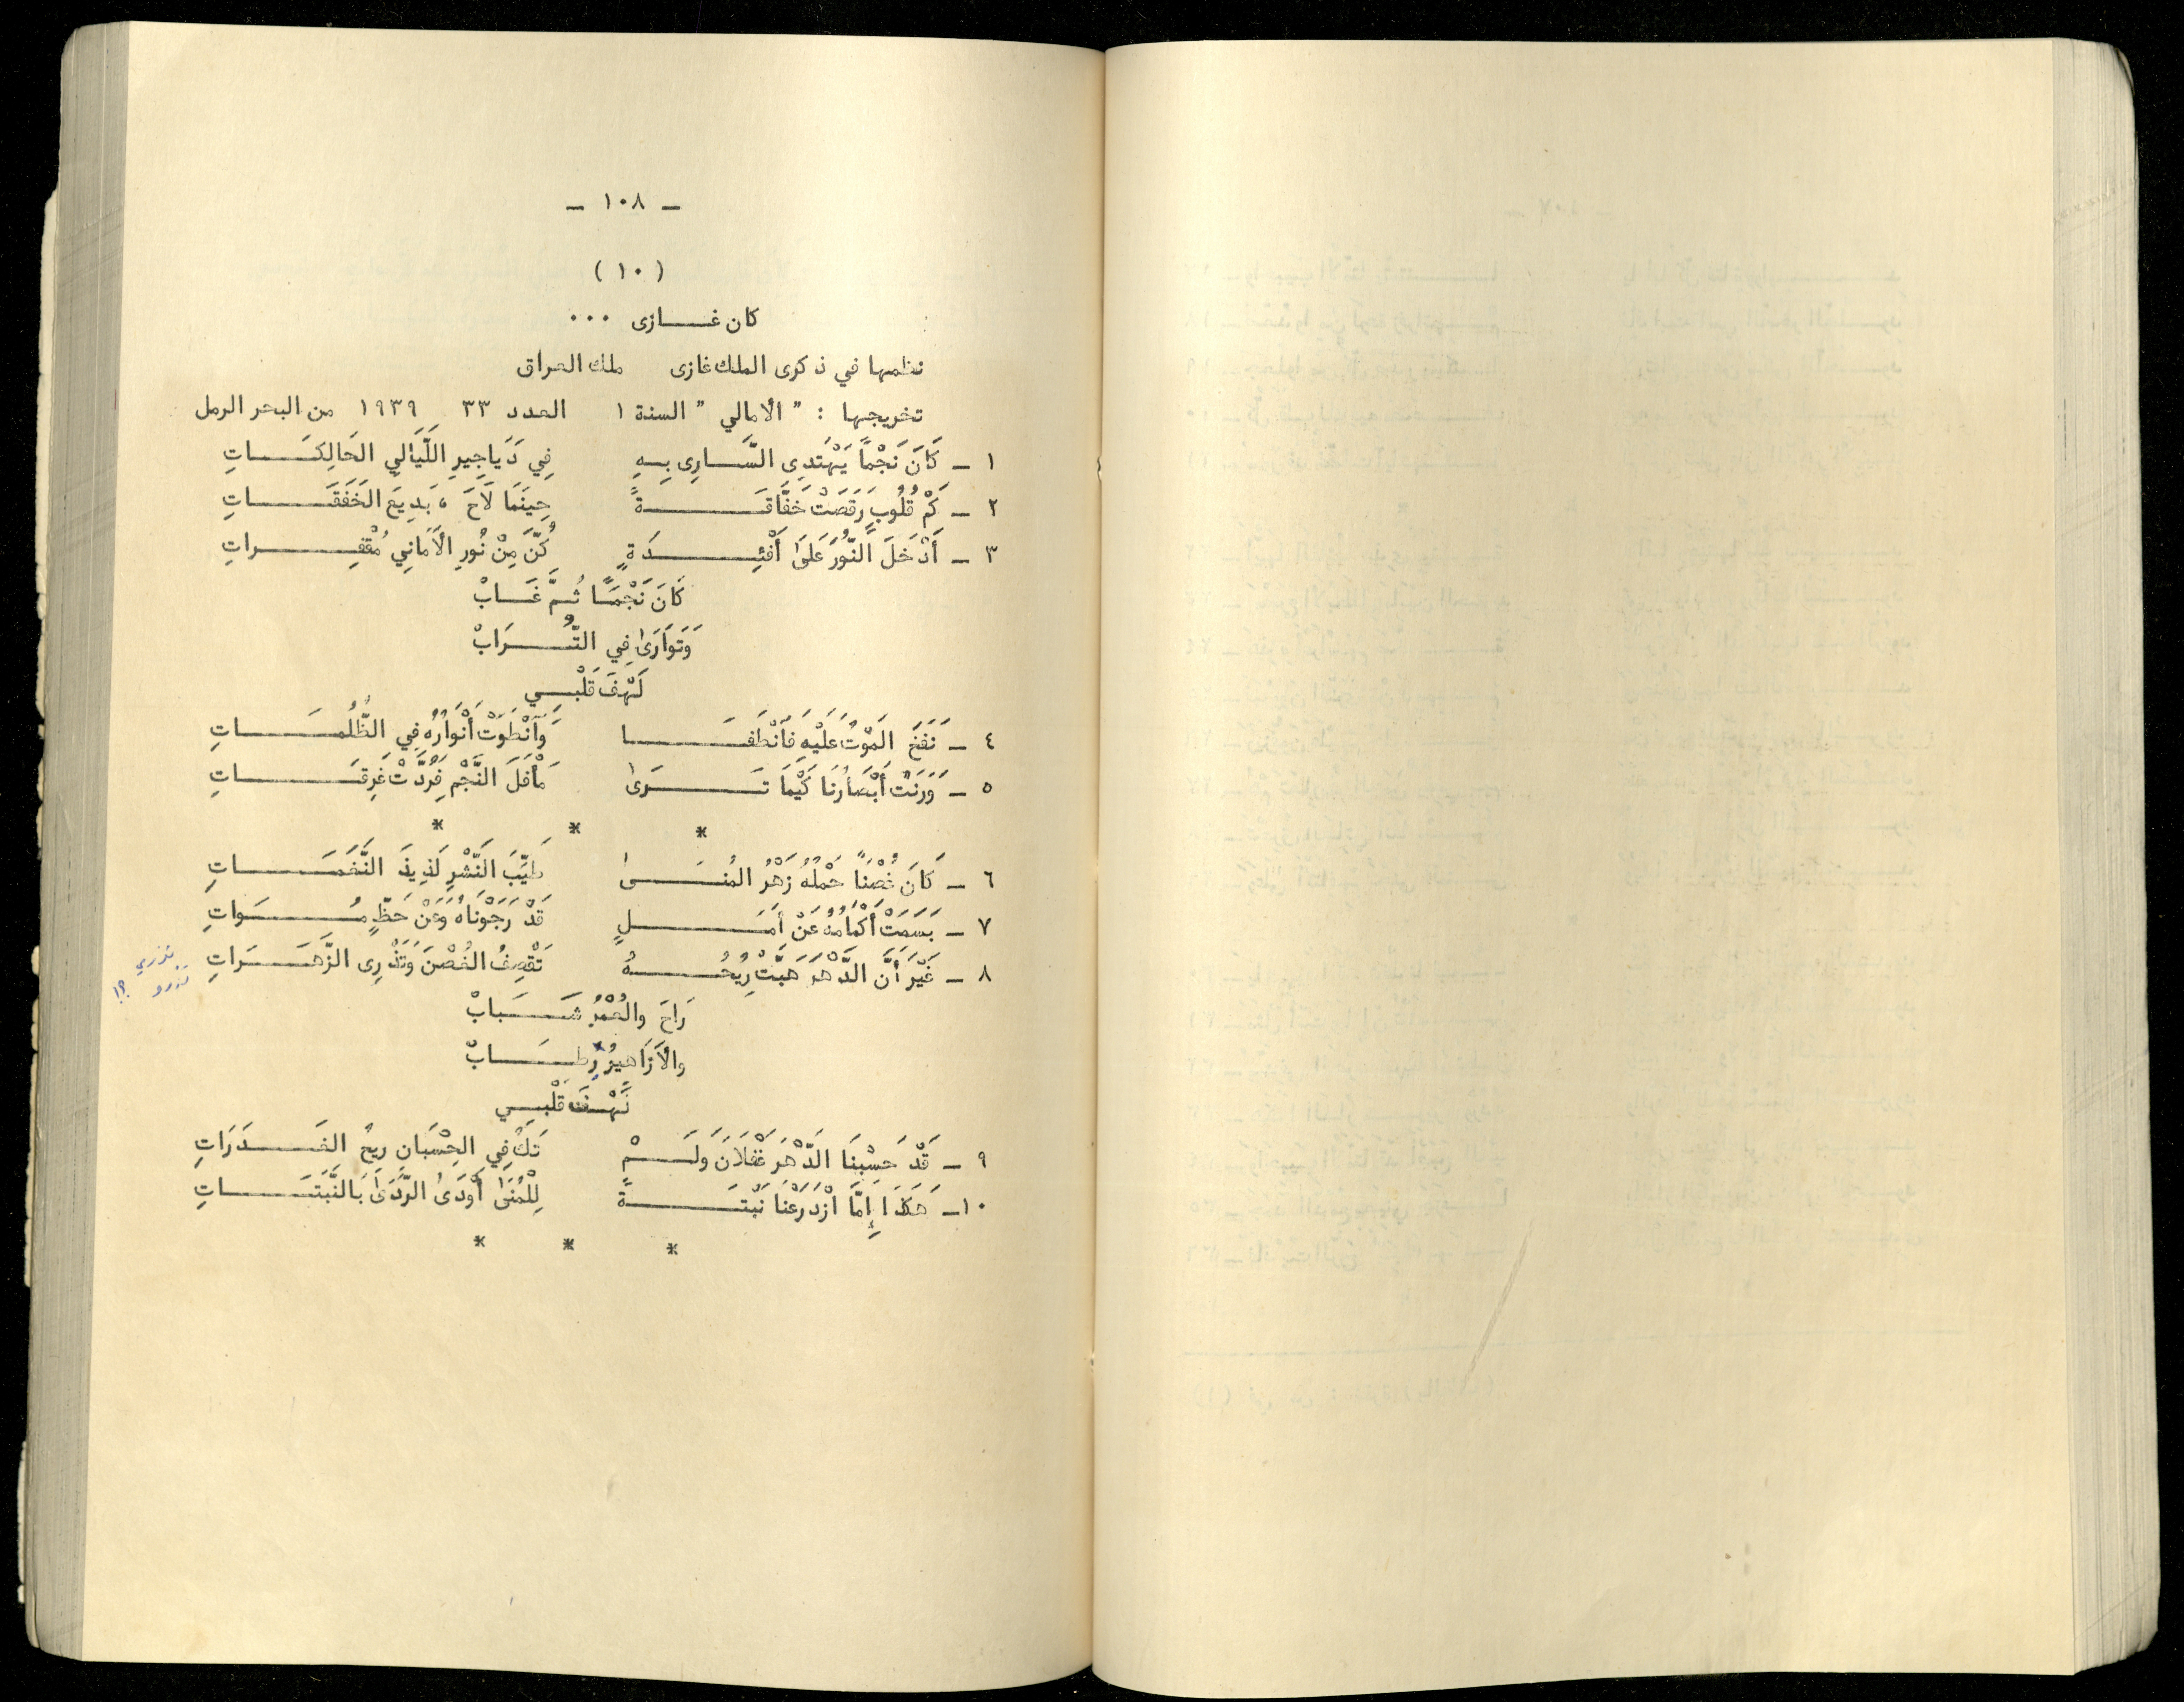 - ١٠٨ -
( ١٠ )
كان غازى ...
نظمها في ذكرى الملك غازى ملك العراق
تخريجها : " الأمالي " السنة ١ العدد ٣٣ ١٩٣٩ من البحر الرمل
١ - كَانَ نَجْمًا يَهْتَدِى السَّارِى بِهِ فِي دَيَاجِيرِ اللَّيَالِي الحَالِكَاتِ
٢ - كَمْ قُلُوبٍ رَقَصَتْ خَفَّاقَةً حِينَمَا لَاحَ ، بَدِيعَ الخَفَقَاتِ
٣ - أَدْخَلَ النُّورَ عَلَى أَفْئِدَةٍ كُنَّ مِنْ نُورِ الأَمَانِي مُقْفِراتِ
كَانَ نَجْمًا ثُمَّ غَابْ
وَتَوَارَىٰ فِي التُّرَابْ
لَهْفَ قَلْبِي
٤ - نَفَخَ المَوْتُ عَلَيْهِ فَانْطَفَا وَانْطَوَتْ أَنْوَارُهُ فِي الظُّلُمَاتِ
٥ - وَرَنَتْ أَبْصَارُنَا كَيْمَا تَرَىٰ مَأْفَلَ النَّجْمِ فَرُدَّتْ غَرِقَاتِ
* * *
٦ - كَانَ غُصْنًا حَمْلُهُ زَهْرُ المُنَىٰ طَيِّبَ النَّشْرِ لَذِيذَ النَّغَمَاتِ
٧ - بَسَمَتْ أَكْمَامُهُ عَنْ أَمَلٍ قَدْ رَجَوْنَاهُ وَعَنْ حَظٍّ مُوَاتِ
٨ - غَيْرَ أَنَّ الدَّهْرَ هَبَّتْ رِيحُهُ تَقْصِفُ الغُصْنَ وَتَذْرِى الزَّهَرَاتِ
تذري
تذرو ؟!
رَاحَ والعُمْرُ شَبَابْ
والأَزَاهِيرُ رِطَابْ
لَهْفَ قَلْبِي
٩ - قَدْ حَسِبْنَا الدَّهْرَ غَفْلَانَ وَلَمْ تَكُ فِي الحِسْبَانِ رِيحُ الغَدَرَاتِ
١٠ - هَكَذَا إِمَّا ازْدَرَعْنَا نَبْتَةً لِلْمُنَىٰ أَوْدَىٰ الرَّدَىٰ بَالنَّبَتَاتِ
* * *